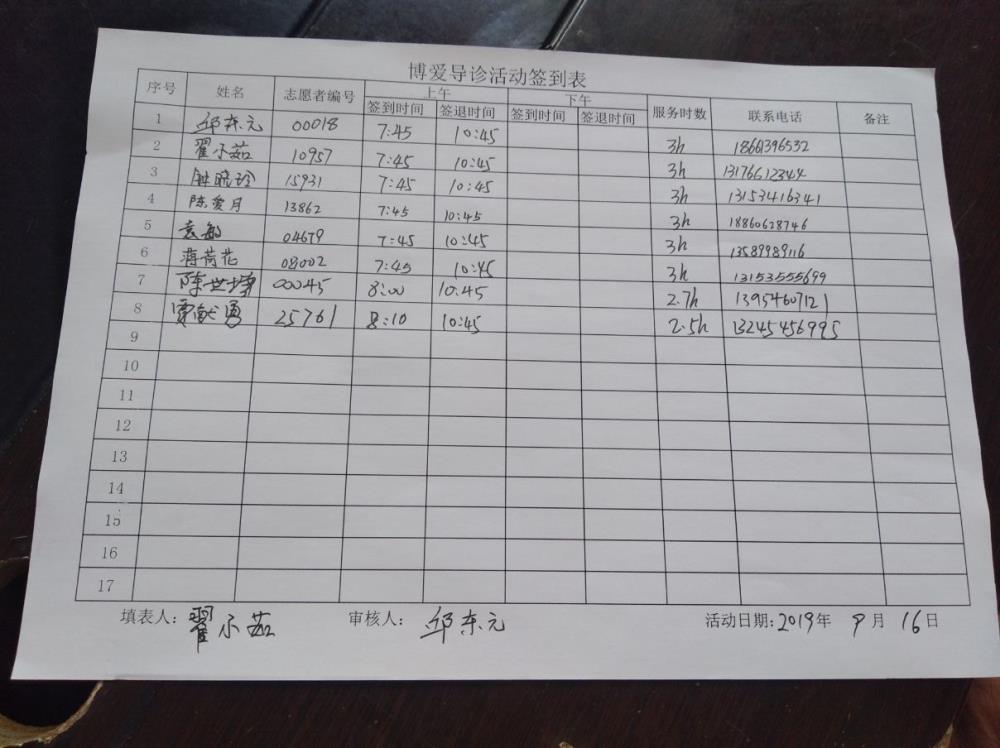 博爱导诊活动签到表
序号 姓名 志愿者编号 上午 下午 服务时数 联系电话 备注
签到时间 签退时间 签到时间 签退时间
1 邱东元 00018 7:45 10:45 3h 18661396532
2 翟小茹 10957 7:45 10:45 3h 13176612344
3 钟晓玲 15931 7:45 10:45 3h 13153416341
4 陈爱月 13862 7:45 10:45 3h 18860628746
5 袁敏 04679 7:45 10:45 3h 13589989116
6 蒋荷花 08002 7:45 10:45 3h 13153555699
7 陈世 00045 8:00 10:45 2.7h 13954607121
8 贾献勇 25761 8:10 10:45 2.5h 13245456995
9
10
11
12
13
14
15
16
17
填表人: 翟小茹 审核人: 邱东元 活动日期: 2019年 9月 16日